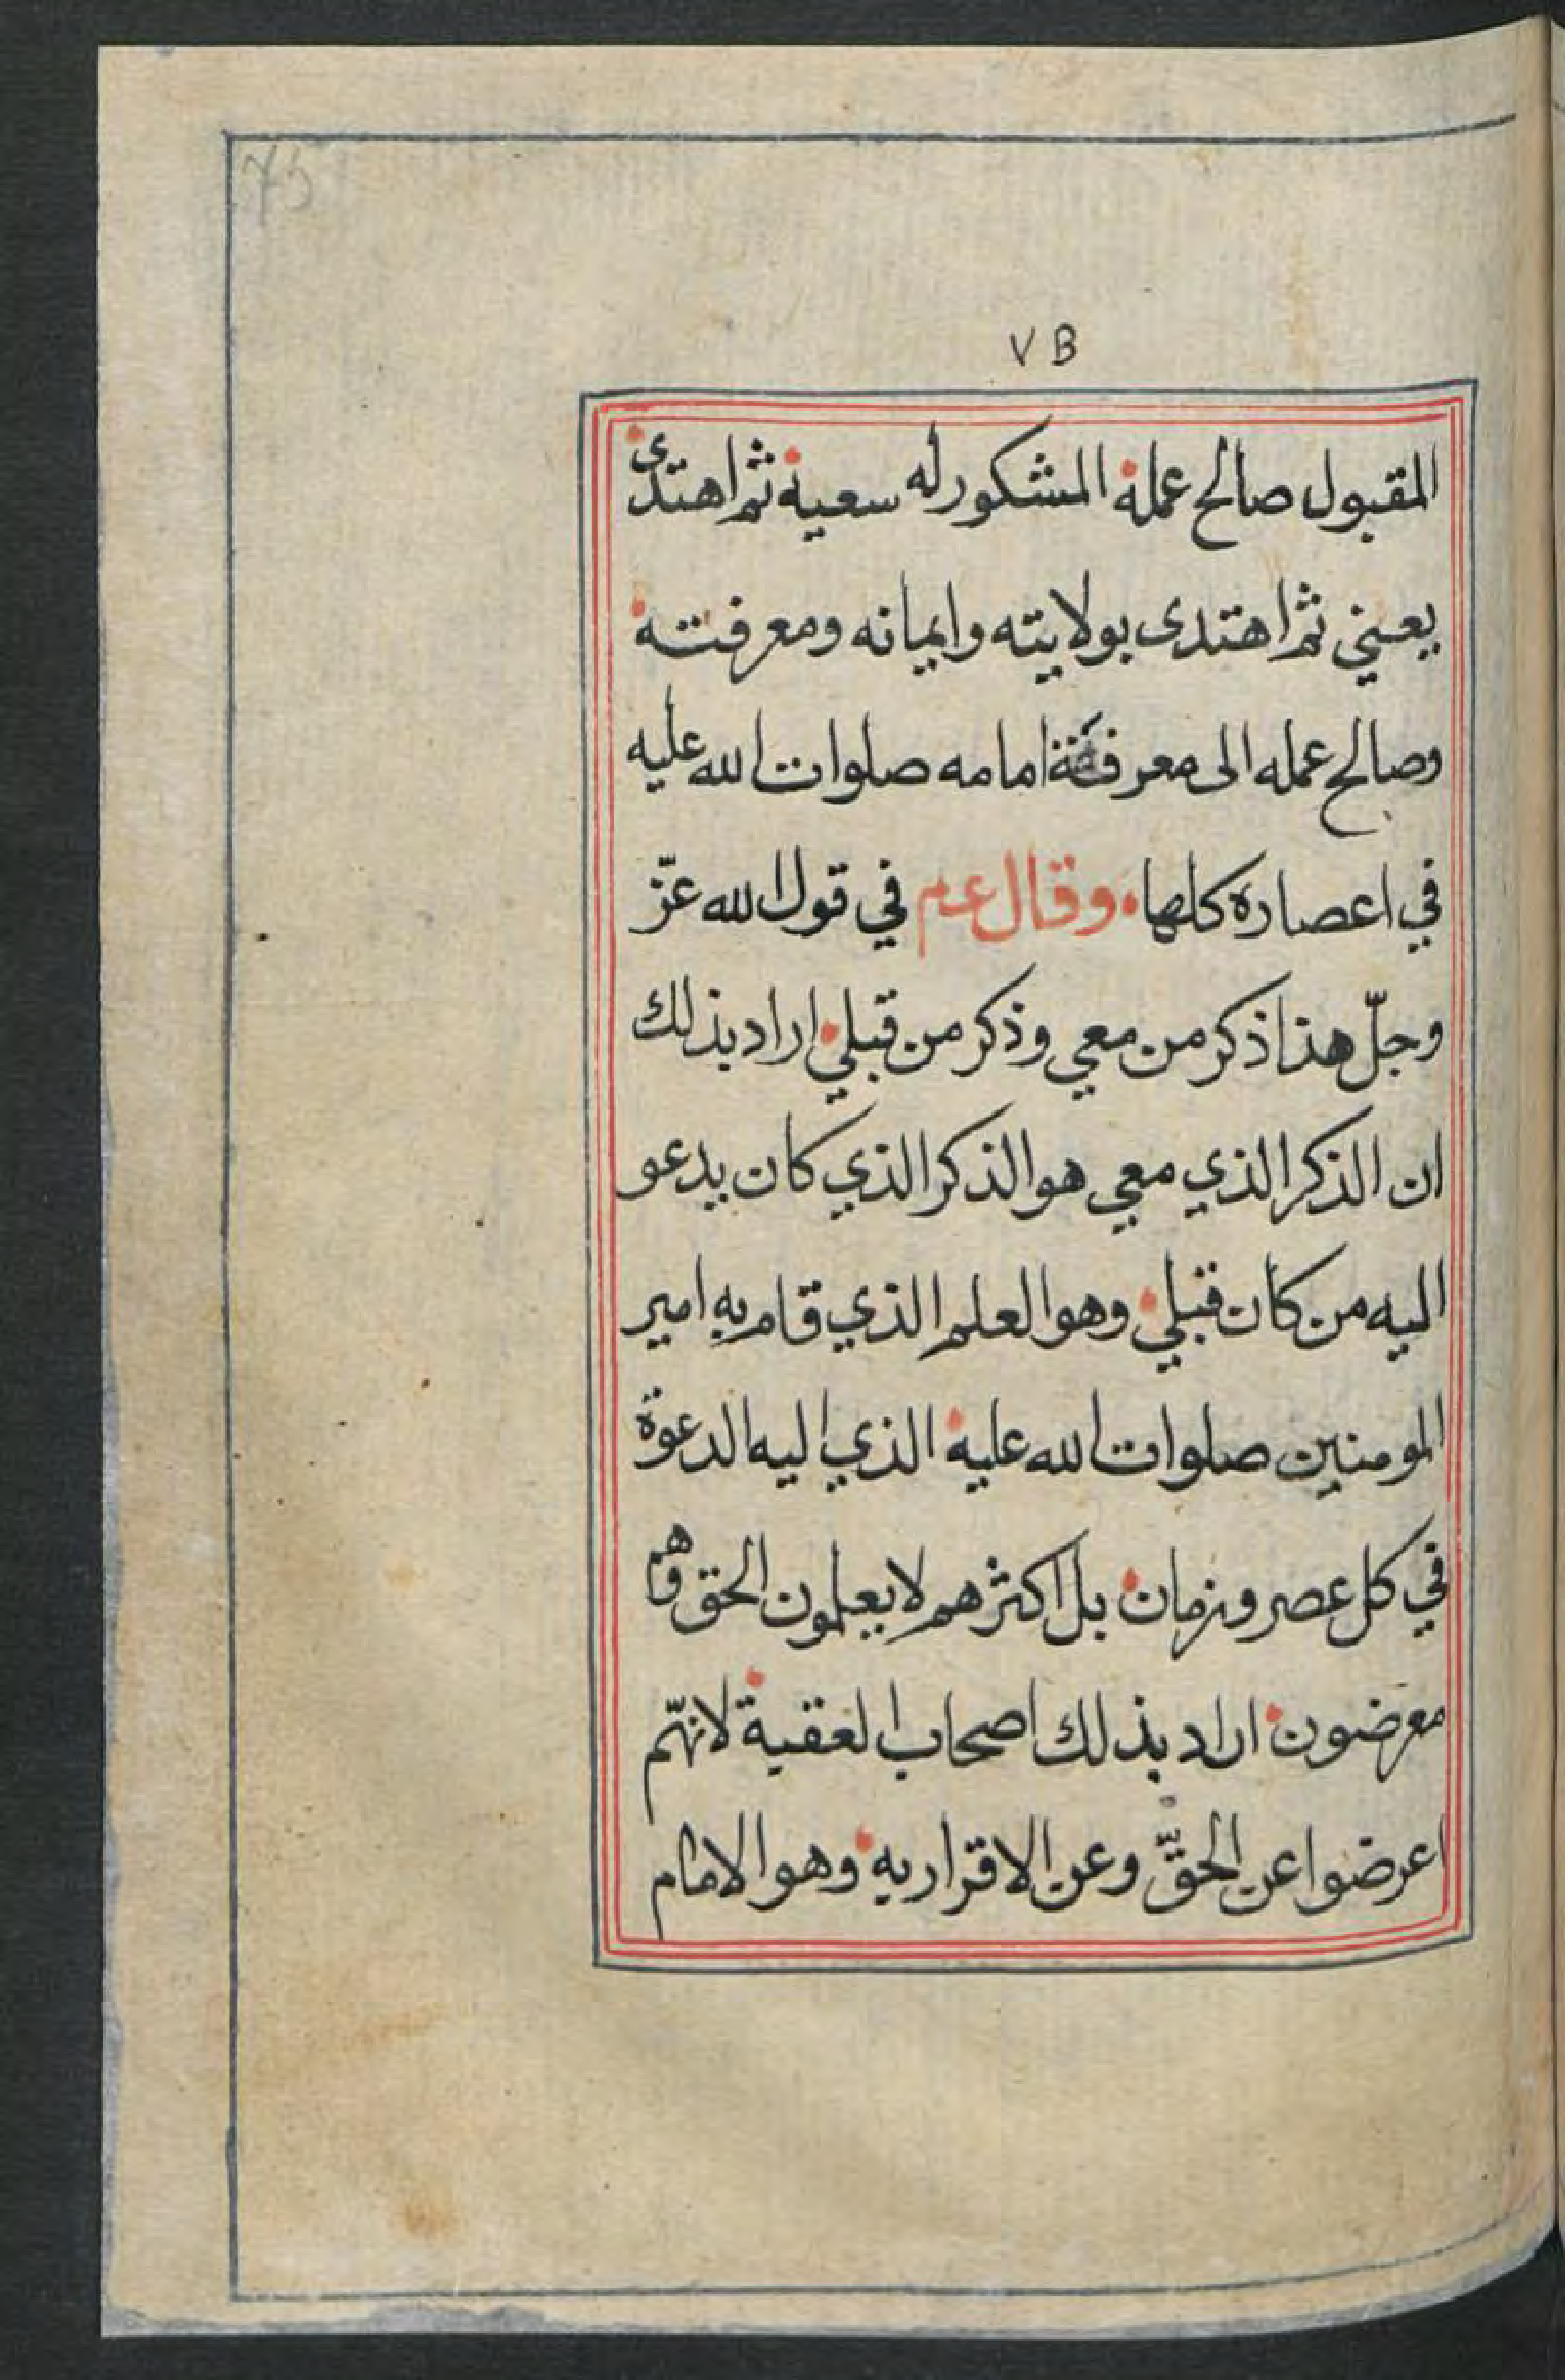 ٧٥
المقبول صالح عمله المشكور له سعيه ثم اهتدى
يعني ثم اهتدى بولايته وايمانه ومعرفته
وصالح عمله الى معرفة امامه صلوات الله عليه
في اعصاره كلها وقال عم في قول الله عزّ
وجلّ هذا ذكر من معي وذكر من قبلي اراد بذلك
ان الذكر الذي معي هو الذكر الذي كان يدعو
اليه من كان قبلي وهو العلم الذي قام به امير
المومنين صلوات الله عليه الذي اليه الدعوة
في كل عصر وزمان بل اكثرهم لا يعلمون الحق فهم
معرضون اراد بذلك اصحاب العقبة لانهّم
اعرضوا عن الحقّ وعن الاقرار به وهو الامام